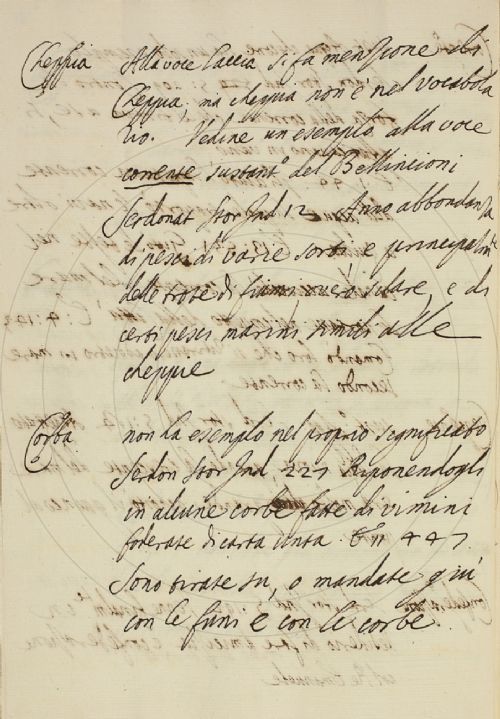 Cheppia Alla voce Laccia si fa menzione di
Cheppia, ma cheppia non è nel vocabola
rio. Vedine un esempio alla voce
corrente sustant.o del Bellincioni
Serdonat Stor Ind 12 Anno abbondanza
di pesci di varie sorti e principalm.te
delle trote di fiumi overo salare, e di
certi pesci marini simili alle
cheppie
Corba non ha esempio nel proprio significato
Serdon Stor Ind. 227 Riponendogli
in alcune corbe fatte di vimini
foderate di carta unta. 447
Sono tirate su, o mandate giù
con le funi e con le corbe.